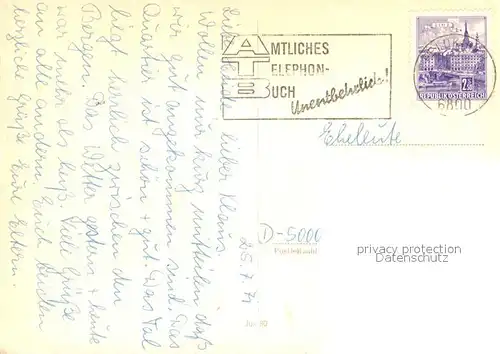 Liebe lieber Klaus.
Wollen nur kurz mitteilen, daß
wir gut angekommen sind. Das
Quartier ist schön + gut. Das Tal
liegt herrlich zwischen den
Bergen. Das Wetter gestern + heute
war mehr als heiß. Viele Grüße
an alle andern. Euch beiden
herzliche Grüße Eure Eltern.
25.7.71
AMTLICHES
TELEPHON-
BUCH
Unentbehrlich!
LINZ
2S
REPUBLIK ÖSTERREICH
6800
Eheleute
D-5000
Postleitzahl
privacy protection
Datenschutz